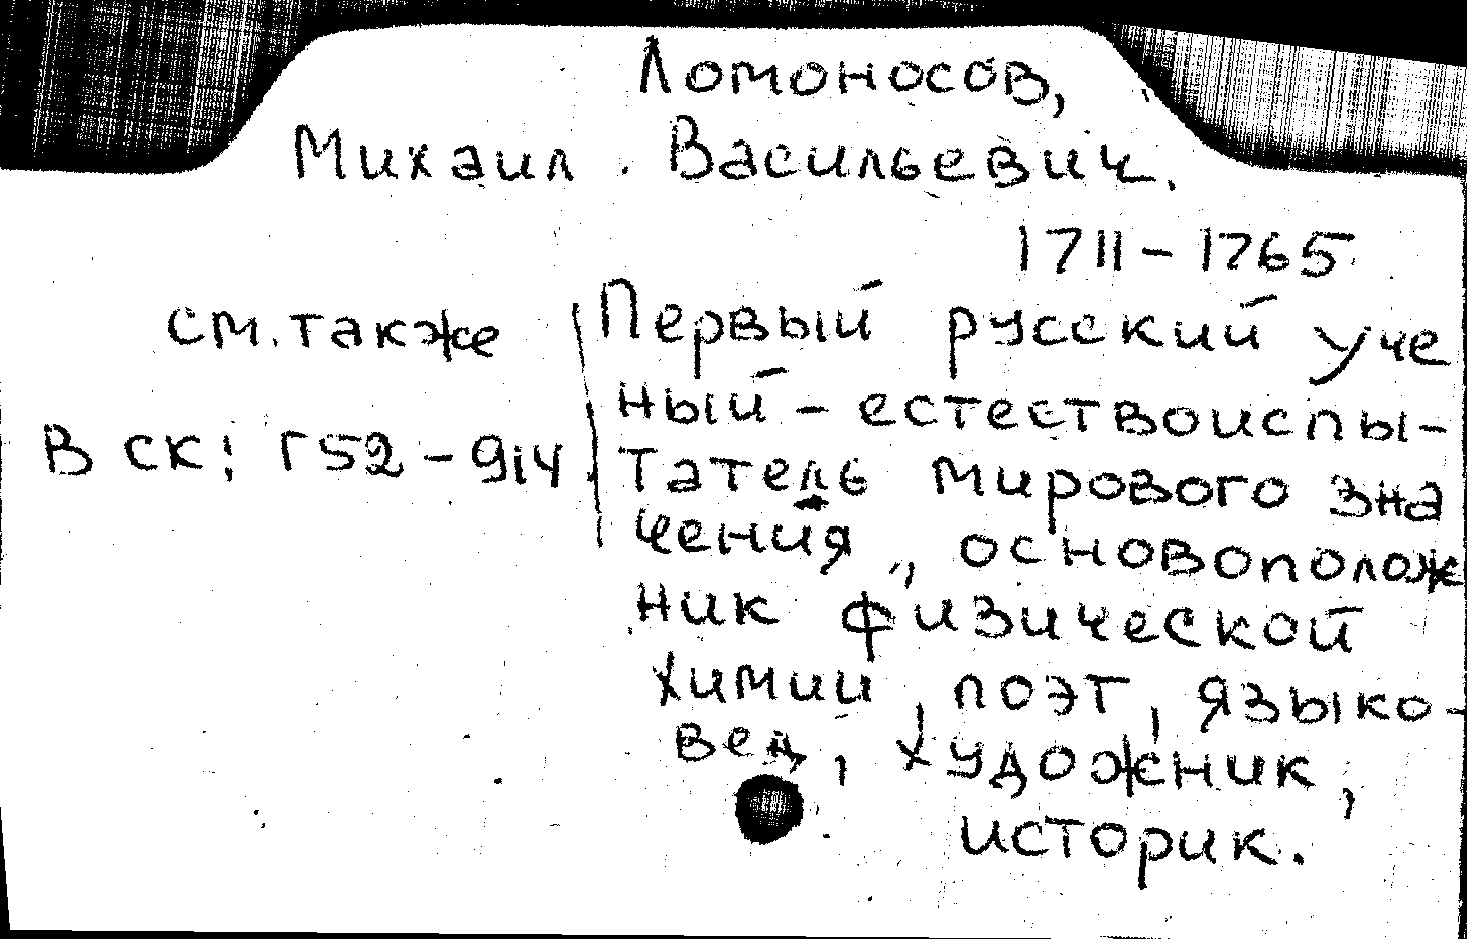 Ломоносов,
Михаил . Васильевич.
1711-1765
см. также
В СК: Г52-914
Первый русский уче
ный - естествоиспы-
татель мирового зна
чения, основополож
ник физической
химии, поэт, языко-
вед, художник,
историк.